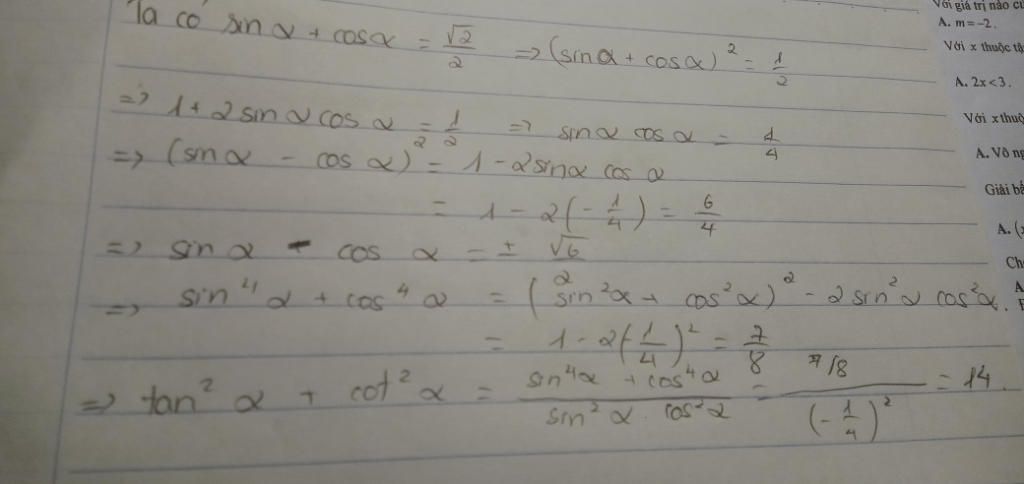 Ta có sin α + cos α = √2/2 => (sin α + cos α)² = 1/2
=> 1 + 2 sin α cos α = 1/2 => sin α cos α = 1/4
=> (sin α - cos α)² = 1 - 2 sin α cos α
= 1 - 2(-1/4) = 6/4
=> sin α - cos α = ± √6/2
=> sin⁴ α + cos⁴ α = (sin² α + cos² α)² - 2 sin² α cos² α.
= 1 - 2(-1/4)² = 7/8
=> tan² α + cot² α = (sin⁴ α + cos⁴ α)/(sin² α . cos² α) = (7/8)/(-1/4)² = 14.
Với giá trị nào
A. m = -2.
Với x thuộc
A. 2x < 3.
Với x
A. Vô
Giải
A. (